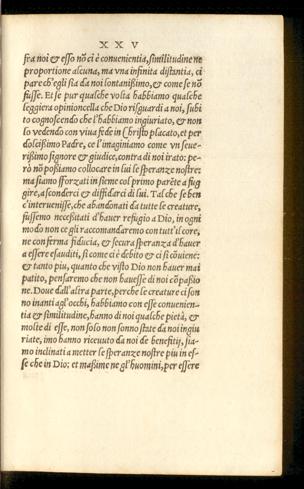 X X V
fra noi & esso nõ ci è conuenientia, similitudine ne
proportione alcuna, ma vna infinita distantia, ci
pare ch'egli sia da noi lontanißimo, & come se nõ
fusse. Et se pur qualche volta habbiamo qualche
leggiera opinioncella che Dio risguardi a noi, subi
to cognoscendo che l'habbiamo ingiuriato, & non
lo vedendo con viua fede in Christo placato, et per
dolcißimo Padre, ce l'imaginiamo come vn seue-
rißimo signore & giudice, contra di noi irato: pe-
rò nõ poßiamo collocare in lui le speranze nostre:
ma siamo sforzati in sieme col primo parẽte a fug
gire, a sconderci & diffidarci di lui. Tal che se ben
e interuenisse, che abandonati da tutte le creature,
fussemo necesitati d'hauer refugio a Dio, in ogni
modo non ce gli raccomandaremo con tutt'il core,
ne con ferma fiducia, & secura speranza d'hauer
a essere esauditi, si come ci è debito & ci si cõuiene:
& tanto piu, quanto che visto Dio non hauer mai
patito, pensaremo che non hauesse di noi cõpaßio
ne. Doue dall'altra parte, perche le creature ci son
no inanti agl'occhi, habbiamo con esse conuenien-
tia & similitudine, hanno di noi qualche pietà, &
molte di esse, non solo non sonno state da noi ingiu
riate, imo hanno riceuuto da noi de benefitij, sia-
mo inclinati a metter le speranze nostre piu in es-
se che in Dio: et maßime ne gl'huomini, per essere